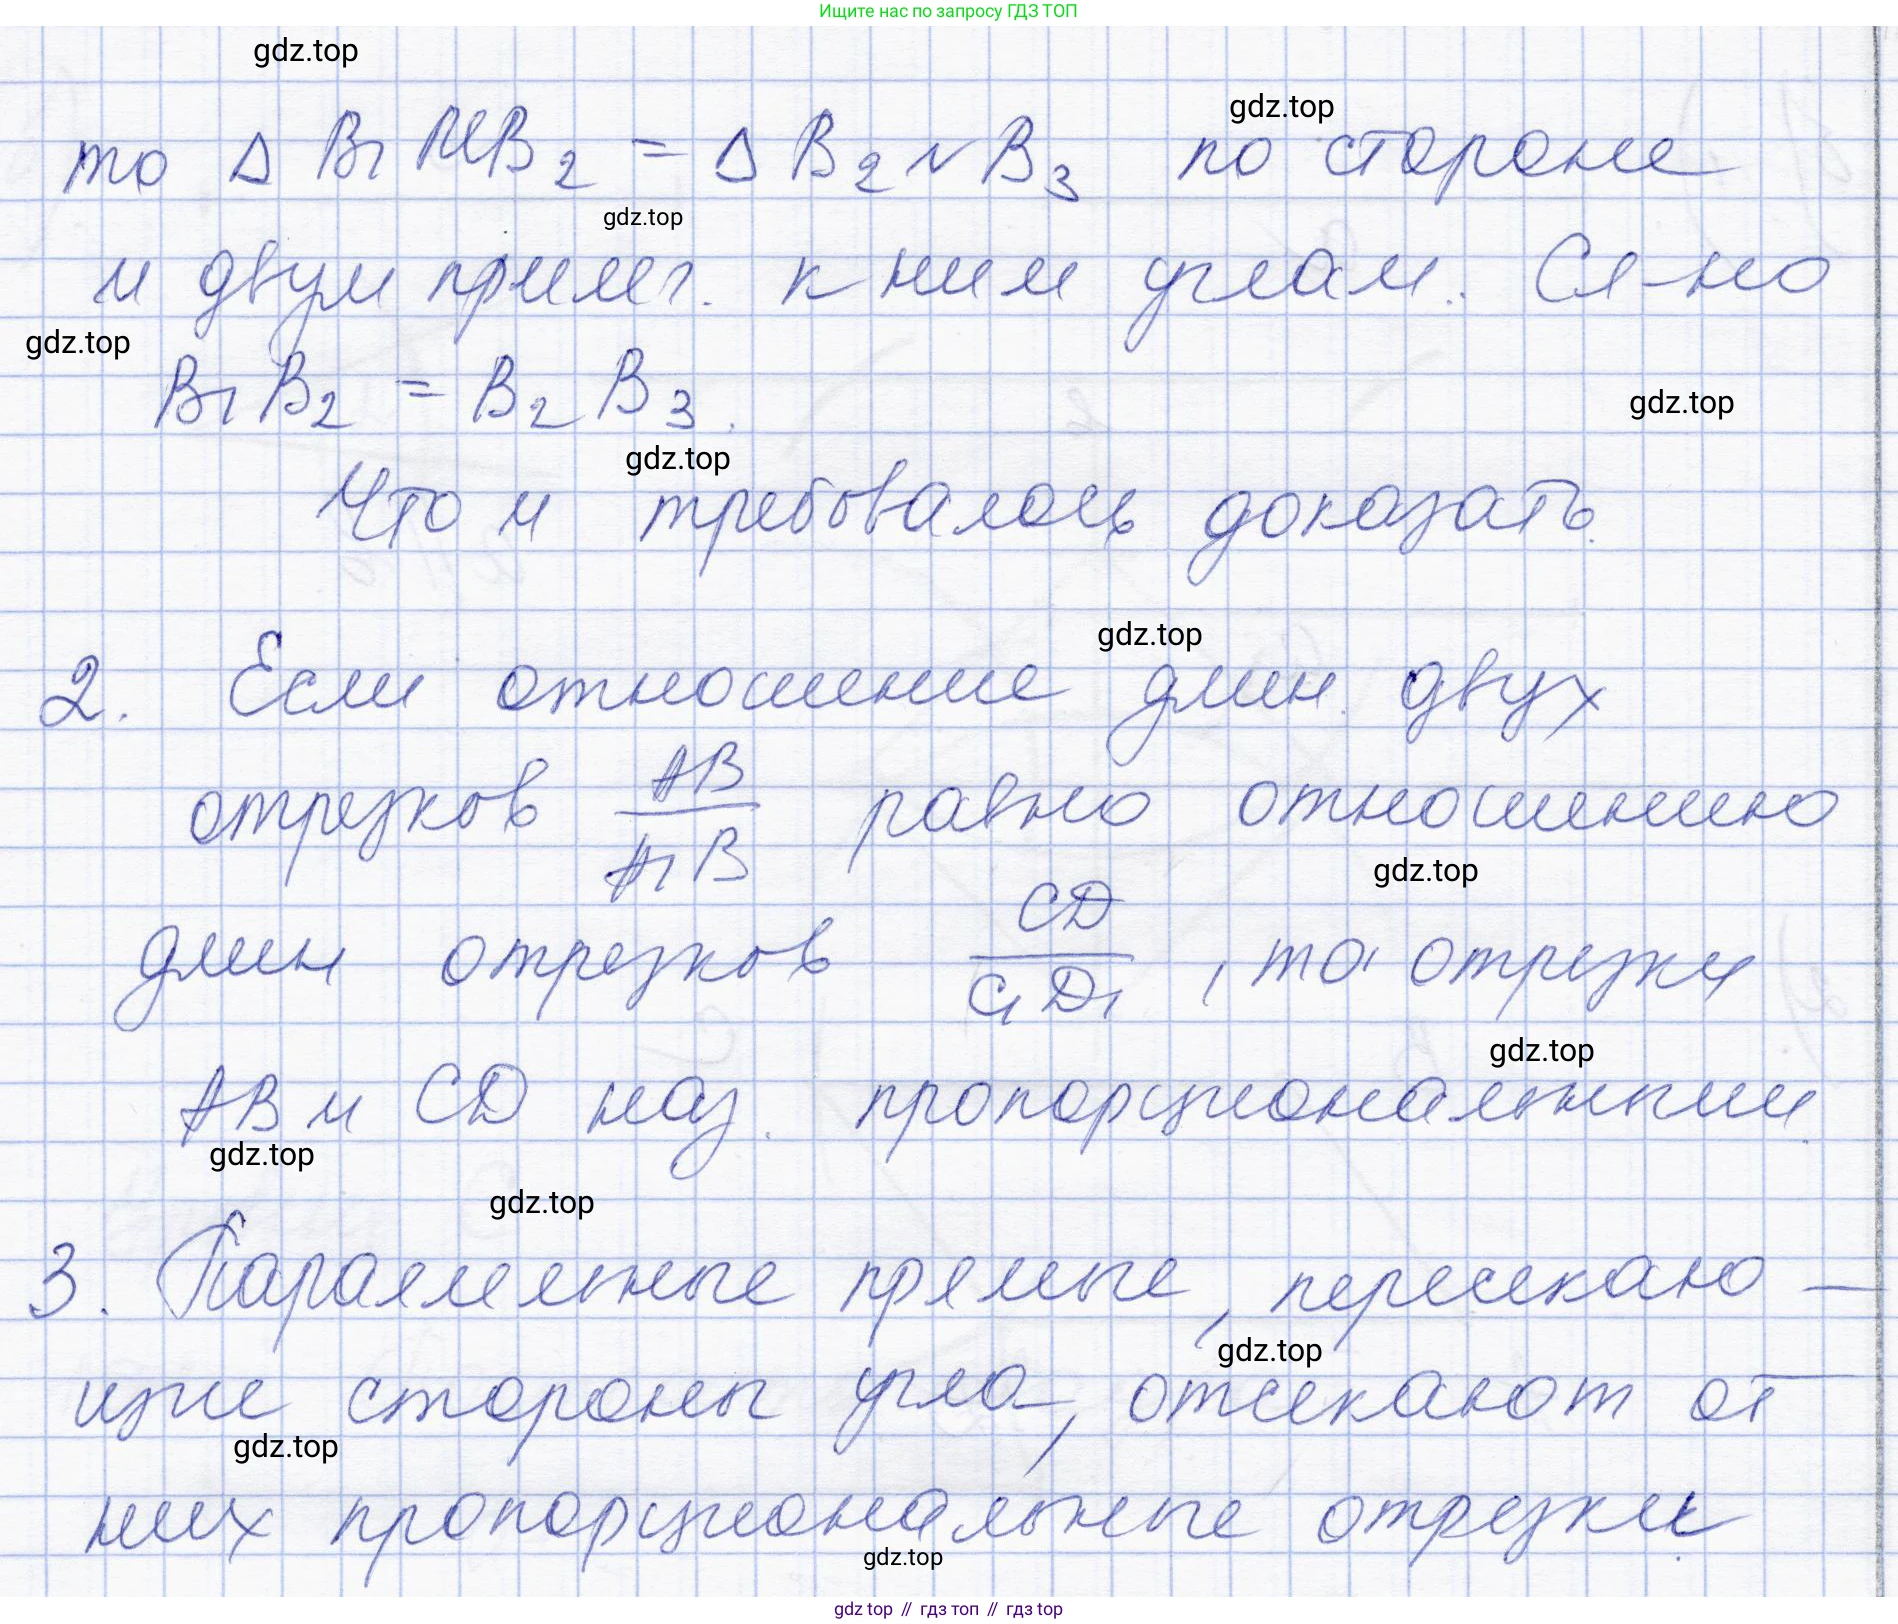 Ищите нас по запросу ГДЗ ТОП
gdz.top
gdz.top
то Δ B₁MB₂ = Δ B₂NB₃ по стороне
gdz.top
и двум прилег. к ним углам. Сл-но
gdz.top
B₁B₂ = B₂B₃.
gdz.top
gdz.top
Что и требовалось доказать.
gdz.top
2. Если отношение длин двух
отрезков AB/A₁B равно отношению
gdz.top
длин отрезков CD/C₁D₁, то отрезки
gdz.top
AB и CD наз. пропорциональными.
gdz.top
gdz.top
3. Параллельные прямые, пересекаю-
gdz.top
щие стороны угла, отсекают от
gdz.top
них пропорциональные отрезки.
gdz.top
gdz top // гдз топ // гдз top